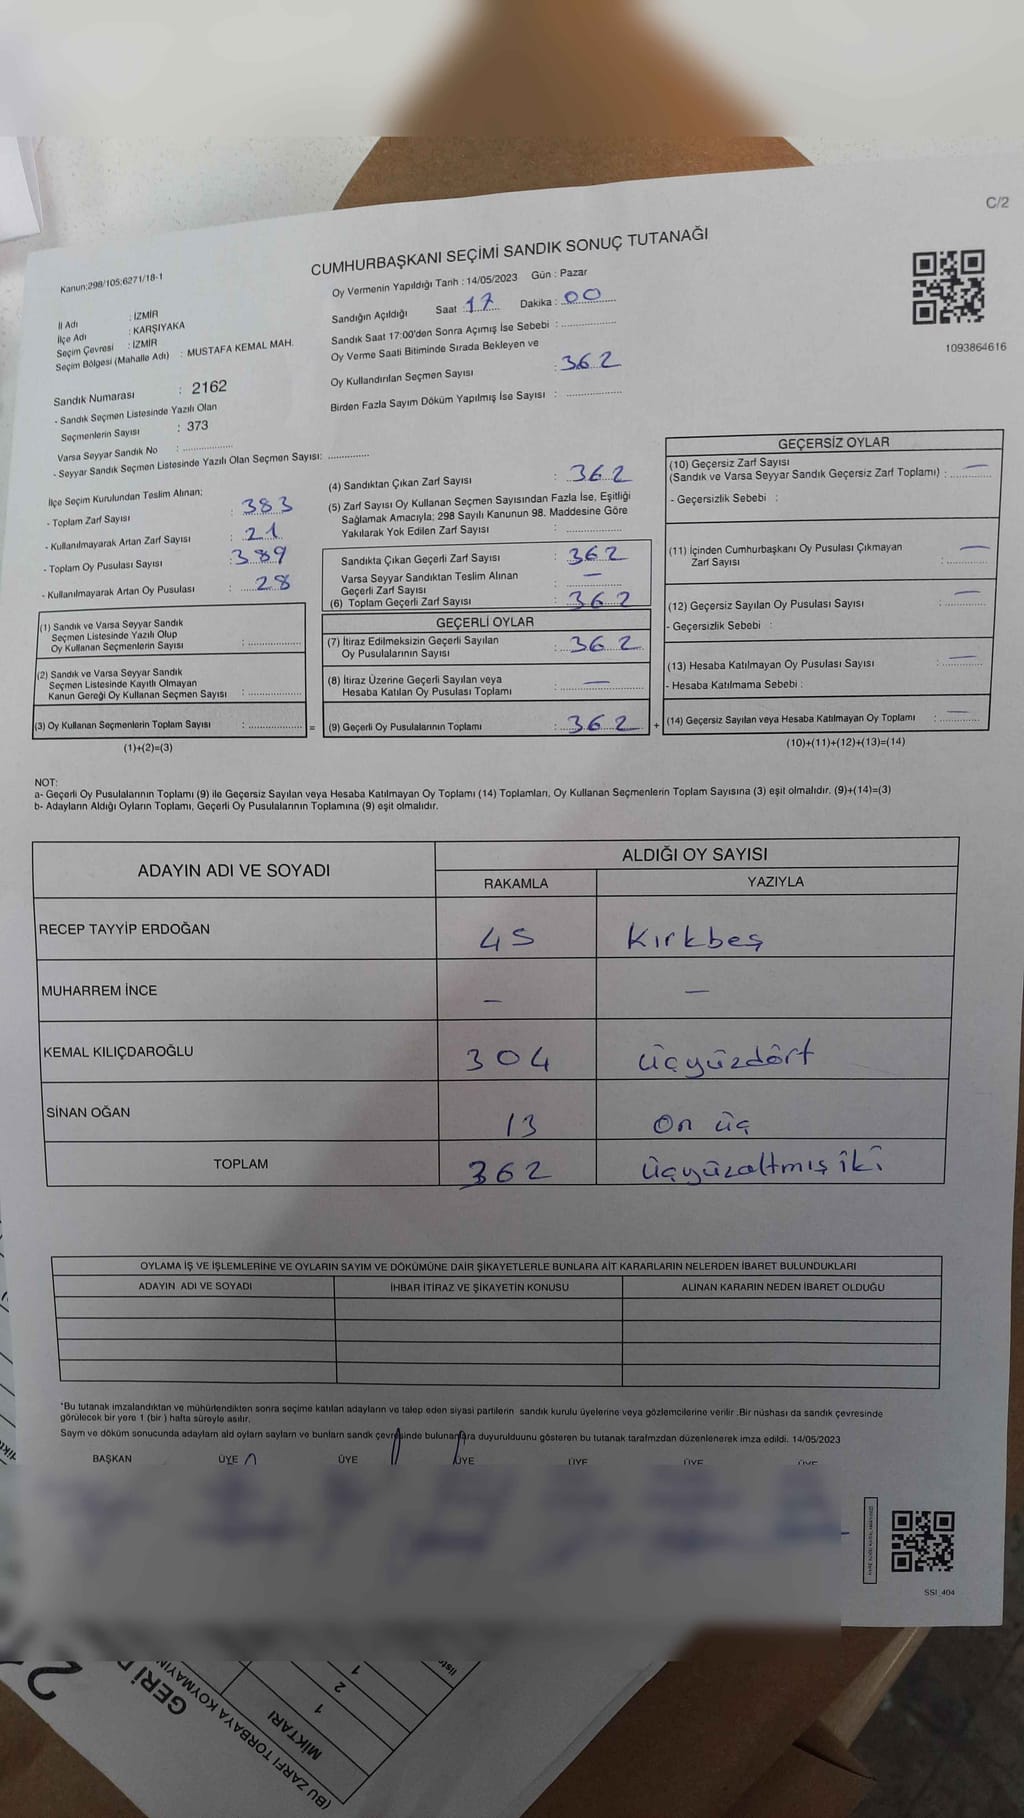 C/2
CUMHURBAŞKANI SEÇİMİ SANDIK SONUÇ TUTANAĞI
Kanun;298/105;6271/18-1
Oy Vermenin Yapıldığı Tarih : 14/05/2023 Gün : Pazar
Sandığın Açıldığı Saat : 17 Dakika : 00
Sandık Saat 17:00'den Sonra Açımış İse Sebebi :
Oy Verme Saati Bitiminde Sırada Bekleyen ve
Oy Kullandırılan Seçmen Sayısı : 362
Birden Fazla Sayım Döküm Yapılmış İse Sayısı :
1093864616
İl Adı : İZMİR
İlçe Adı : KARŞIYAKA
Seçim Çevresi : İZMİR
Seçim Bölgesi (Mahalle Adı) : MUSTAFA KEMAL MAH.
Sandık Numarası : 2162
- Sandık Seçmen Listesinde Yazılı Olan
Seçmenlerin Sayısı : 373
Varsa Seyyar Sandık No :
- Seyyar Sandık Seçmen Listesinde Yazılı Olan Seçmen Sayısı:
İlçe Seçim Kurulundan Teslim Alınan;
- Toplam Zarf Sayısı : 383
- Kullanılmayarak Artan Zarf Sayısı : 21
- Toplam Oy Pusulası Sayısı : 389
- Kullanılmayarak Artan Oy Pusulası : 28
(1) Sandık ve Varsa Seyyar Sandık
Seçmen Listesinde Yazılı Olup
Oy Kullanan Seçmenlerin Sayısı :
(2) Sandık ve Varsa Seyyar Sandık
Seçmen Listesinde Kayıtlı Olmayan
Kanun Gereği Oy Kullanan Seçmen Sayısı :
(3) Oy Kullanan Seçmenlerin Toplam Sayısı : =
(1)+(2)=(3)
(4) Sandıktan Çıkan Zarf Sayısı : 362
(5) Zarf Sayısı Oy Kullanan Seçmen Sayısından Fazla İse, Eşitliği
Sağlamak Amacıyla; 298 Sayılı Kanunun 98. Maddesine Göre
Yakılarak Yok Edilen Zarf Sayısı :
Sandıkta Çıkan Geçerli Zarf Sayısı : 362
Varsa Seyyar Sandıktan Teslim Alınan
Geçerli Zarf Sayısı : —
(6) Toplam Geçerli Zarf Sayısı : 362
GEÇERLİ OYLAR
(7) İtiraz Edilmeksizin Geçerli Sayılan
Oy Pusulalarının Sayısı : 362
(8) İtiraz Üzerine Geçerli Sayılan veya
Hesaba Katılan Oy Pusulası Toplamı : —
(9) Geçerli Oy Pusulalarının Toplamı : 362 +
GEÇERSİZ OYLAR
(10) Geçersiz Zarf Sayısı
(Sandık ve Varsa Seyyar Sandık Geçersiz Zarf Toplamı) : —
- Geçersizlik Sebebi :
(11) İçinden Cumhurbaşkanı Oy Pusulası Çıkmayan
Zarf Sayısı : —
(12) Geçersiz Sayılan Oy Pusulası Sayısı : —
- Geçersizlik Sebebi :
(13) Hesaba Katılmayan Oy Pusulası Sayısı : —
- Hesaba Katılmama Sebebi :
(14) Geçersiz Sayılan veya Hesaba Katılmayan Oy Toplamı : —
(10)+(11)+(12)+(13)=(14)
NOT:
a- Geçerli Oy Pusulalarının Toplamı (9) ile Geçersiz Sayılan veya Hesaba Katılmayan Oy Toplamı (14) Toplamları, Oy Kullanan Seçmenlerin Toplam Sayısına (3) eşit olmalıdır. (9)+(14)=(3)
b- Adayların Aldığı Oyların Toplamı, Geçerli Oy Pusulalarının Toplamına (9) eşit olmalıdır.
ADAYIN ADI VE SOYADI ALDIĞI OY SAYISI
RAKAMLA YAZIYLA
RECEP TAYYİP ERDOĞAN 45 Kırkbeş
MUHARREM İNCE — —
KEMAL KILIÇDAROĞLU 304 üçyüzdört
SİNAN OĞAN 13 On üç
TOPLAM 362 üçyüzaltmış iki
OYLAMA İŞ VE İŞLEMLERİNE VE OYLARIN SAYIM VE DÖKÜMÜNE DAİR ŞİKAYETLERLE BUNLARA AİT KARARLARIN NELERDEN İBARET BULUNDUKLARI
ADAYIN ADI VE SOYADI İHBAR İTİRAZ VE ŞİKAYETİN KONUSU ALINAN KARARIN NEDEN İBARET OLDUĞU
*Bu tutanak imzalandıktan ve mühürlendikten sonra seçime katılan adayların ve talep eden siyasi partilerin sandık kurulu üyelerine veya gözlemcilerine verilir .Bir nüshası da sandık çevresinde
görülecek bir yere 1 (bir ) hafta süreyle asılır.
Sayım ve döküm sonucunda adaylarn ald oylarn saylarn ve bunlarn sandk çevresinde bulunanlara duyurulduunu gösteren bu tutanak tarafmzdan düzenlenerek imza edildi. 14/05/2023
BAŞKAN ÜYE ÜYE ÜYE ÜYE ÜYE ÜYE
SSI_404
(BU ZARFI TORBAYA KOYMAYIN
MİKTARI
1
2
1